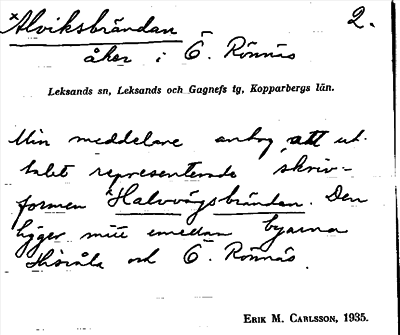 ×Alviksbrändan 2.
åker i Ö. Rönnäs
Leksands sn, Leksands och Gagnefs tg, Kopparbergs län.
Min meddelare antog att ut-
talet representerade skriv-
formen Halvvägsbrändan. Den
ligger mitt emellan byarna
Hisvåla och Ö. Rönnäs.
ERIK M. CARLSSON, 1935.